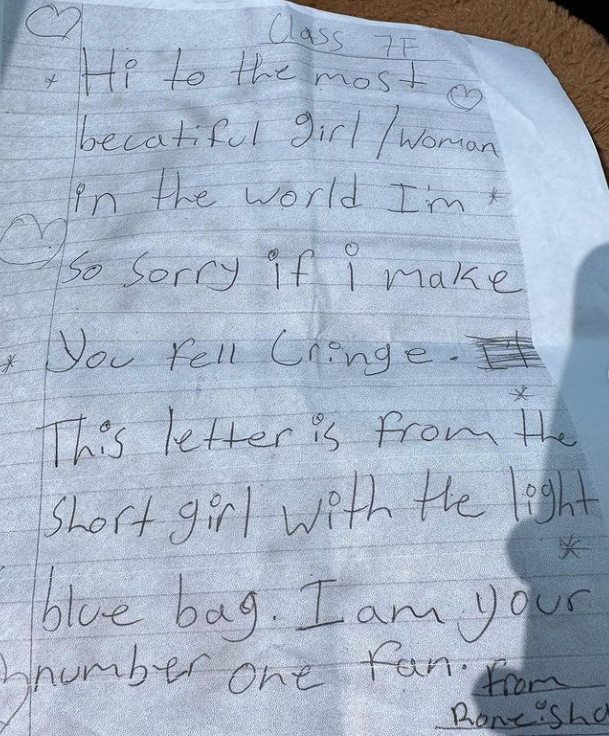 Class 7F
Hi to the most
becatiful girl / woman
in the world I'm *
So Sorry if i make
You fell Cringe.
This letter is from the
Short girl with the light
blue bag. I am your
number one fan. from